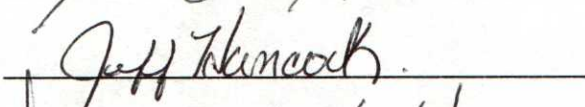 Jeff Hancock.